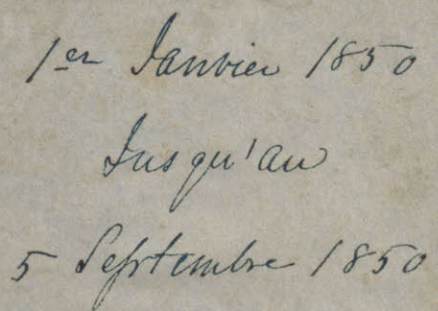 1er Janvier 1850
Jusqu'au
5 Septembre 1850